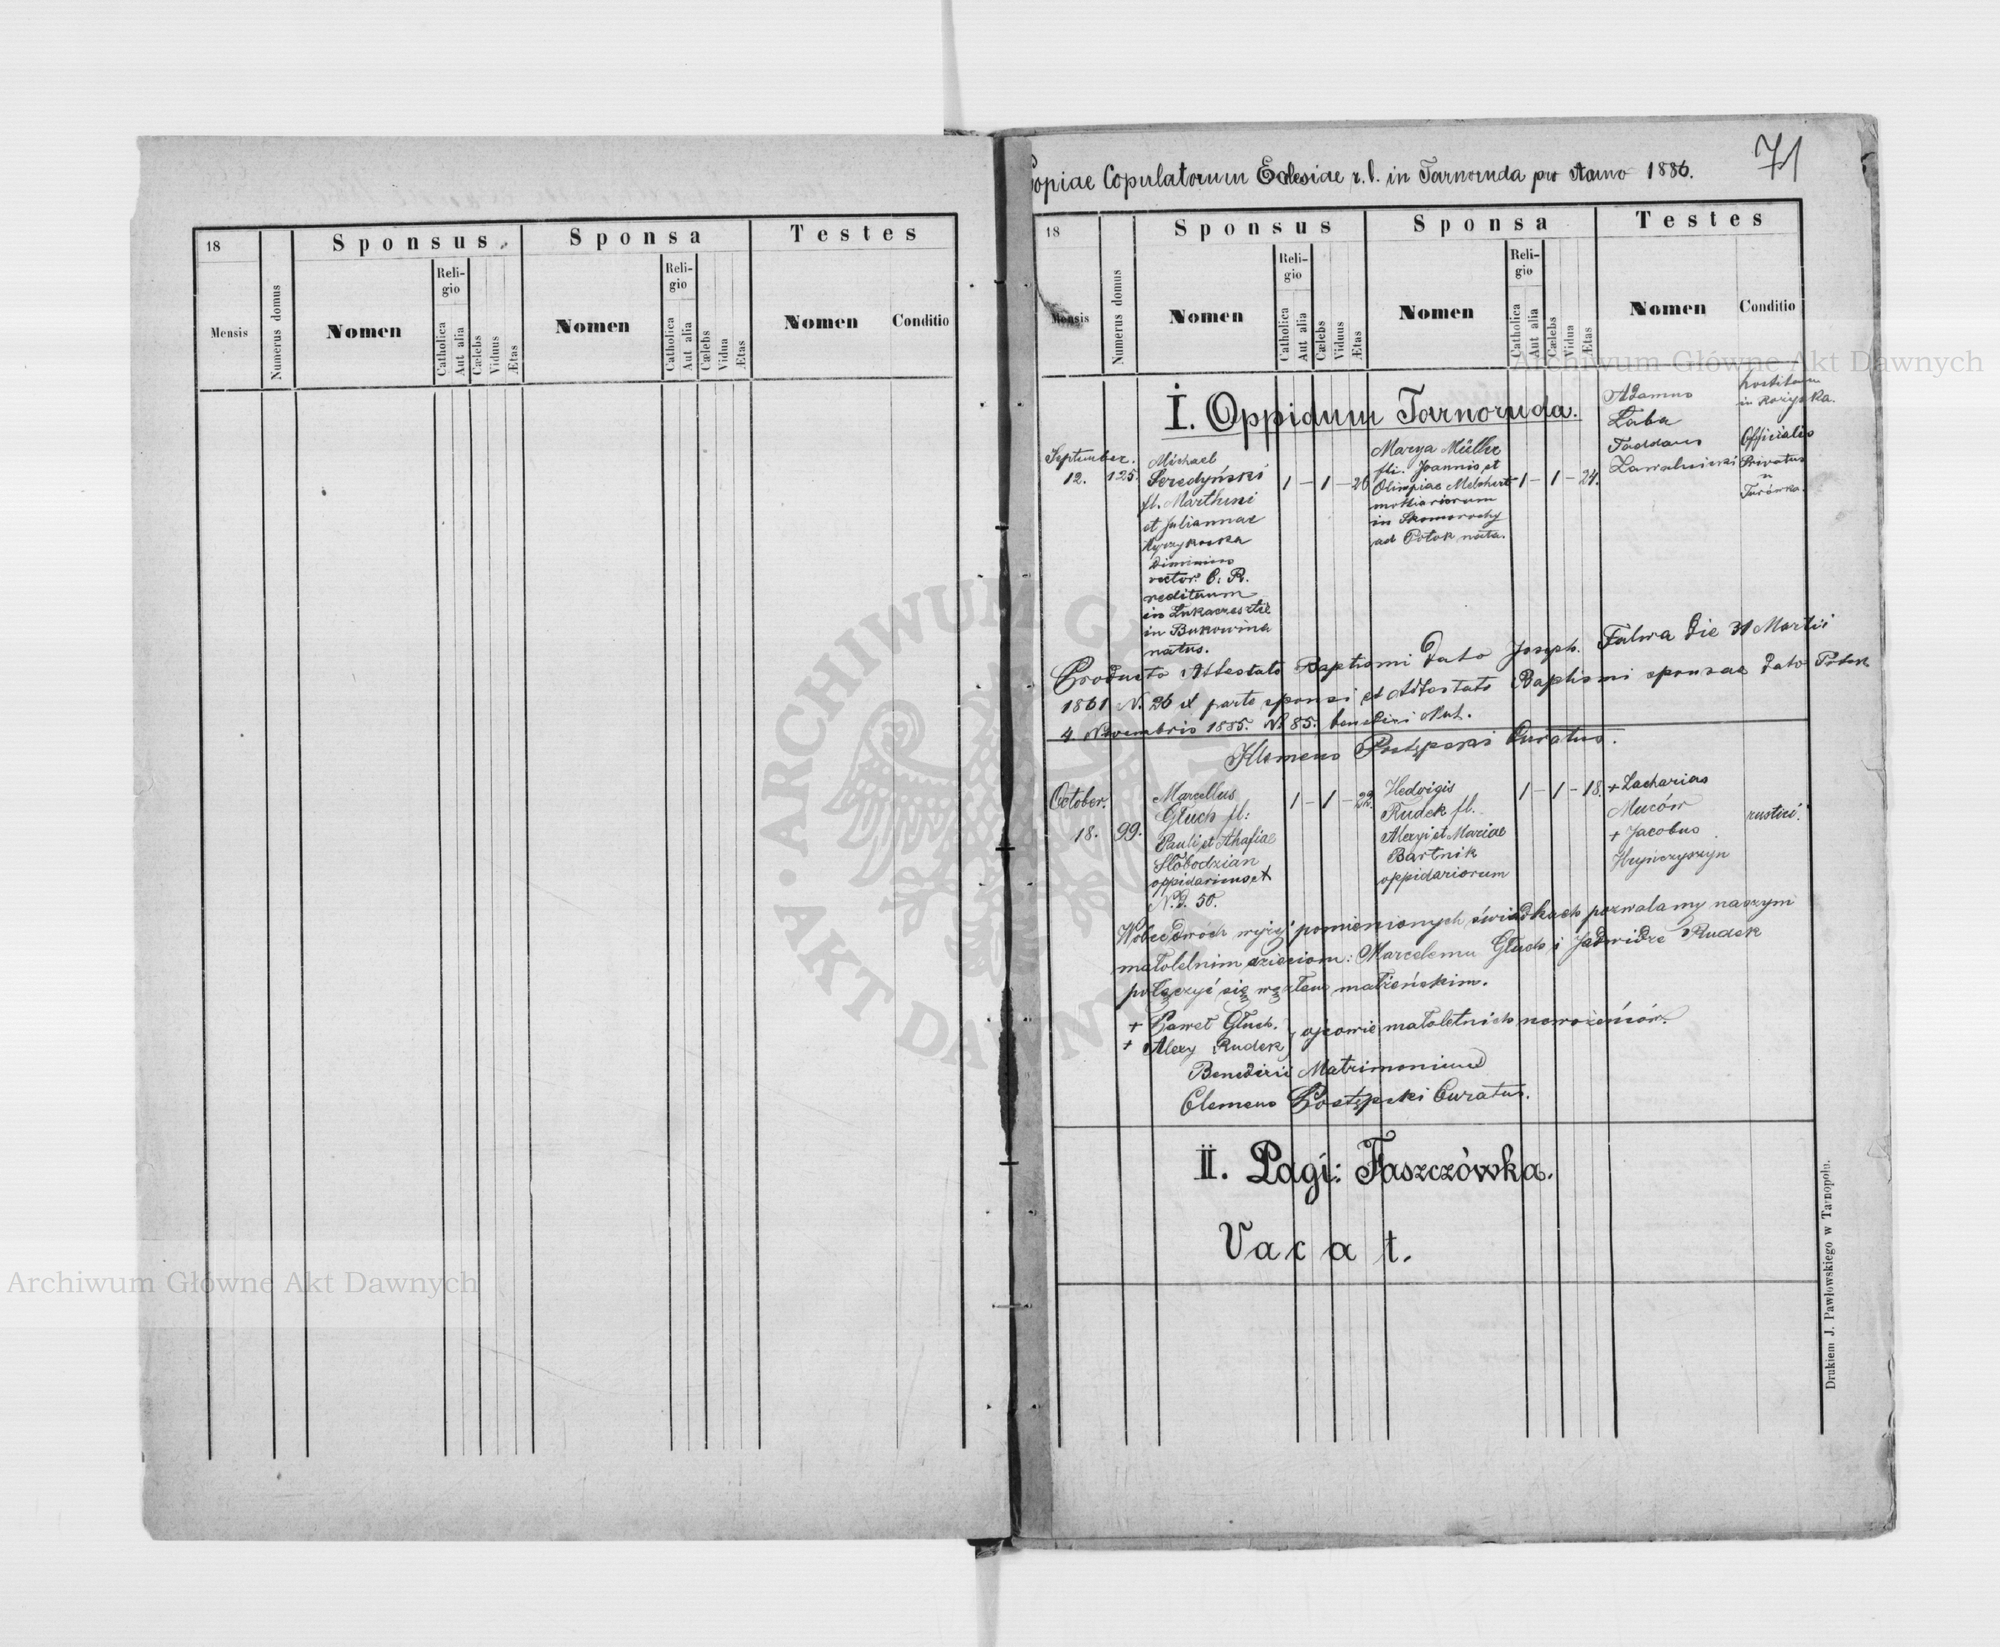 18
Mensis
Numerus domus
Sponsus
Nomen
Reli-
gio
Catholica
Aut alia
Cælebs
Viduus
Ætas
Sponsa
Nomen
Reli-
gio
Catholica
Aut alia
Cælebs
Vidua
Ætas
Testes
Nomen
Conditio
71
Copiae Copulatorum Eclesiae r. l. in Tarnoruda pro Anno 1886.
18
Mensis
Numerus domus
Sponsus
Nomen
Reli-
gio
Catholica
Aut alia
Cælebs
Viduus
Ætas
Sponsa
Nomen
Reli-
gio
Catholica
Aut alia
Cælebs
Vidua
Ætas
Testes
Nomen
Conditio
I. Oppidum Tarnoruda.
September.
12.
125.
Michael
Seredyński
fl. Marthini
et Juliannae
rector: C. R.
redituum
in Bukowina
natus.
1 – 1 – 26
Marya Müller
fli. Joannis et
Olimpiae Melchert
in Skomorochy
ad Potok nata.
1 – 1 – 24.
Adamus
Łaba
Taddaus
in Kozyska.
Officialis
Privatus
Producto Attestato Baptismi dato Joseph. Falwa die 31 Martii
1861 N. 26 ex parte sponsi et Attestato Baptismi sponsae dato Potok
4 Novembris 1885. N. 85. benedixi Mat.
Klemens Postępski Curatus.
October.
18.
99.
Marcellus
Głuch fl:
Pauli et Ahafiae
Słobodzian
N. d. 50.
1 – 1 – 22.
Hedvigis
Rudek fl.
Alexyi et Mariae
Bartnik
oppidariorum
1 – 1 – 18.
+ Zacharias
Muców
+ Jacobus
Hryńczyszyn
rustici.
Wobec dwoch wyżej pomienionych świadkach pozwalamy naszym
małoletnim dzieciom: Marcelemu Głuch i Jadwidze Rudek
połączyć się węzłem małżeńskim.
+ Paweł Głuch.
+ Alexy Rudek } ojcowie małoletnich nowożeńców.
Benedixi Matrimonium
Clemens Postępski Curatus.
II. Pagi: Faszczówka.
Vacat.
Drukiem J. Pawłowskiego w Tarnopolu.
Archiwum Główne Akt Dawnych
Archiwum Główne Akt Dawnych
ARCHIWUM GŁÓWNE · AKT DAWNYCH